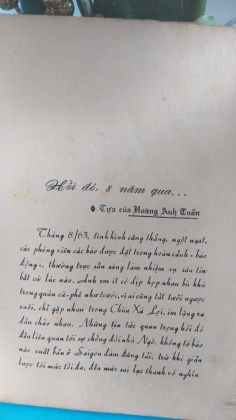 Hồi đó, 8 năm qua...
Tựa của Hoàng Anh Tuấn
Tháng 8/63, tình hình căng thẳng, ngột ngạt,
các phóng viên các báo được đặt trong hoàn cảnh « báo
động », thường trực sẵn sàng làm nhiệm vụ săn tin
bất cứ lúc nào. Anh em ít có dịp họp nhau bù khú
trong quán cà-phê như trước, vì ai cũng tất tưởi ngược
xuôi, chỉ gặp nhau trong Chùa Xá Lợi, im lặng ra
dấu chào nhau. Những tin tức quan trọng hồi đó
đều liên quan tới sự chống đối nhà Ngô, không tờ báo
nào xuất bản ở Saigon dám đăng tải, trừ khi gián
lược tới mức tối đa, đến mức sai lạc thành vô nghĩa